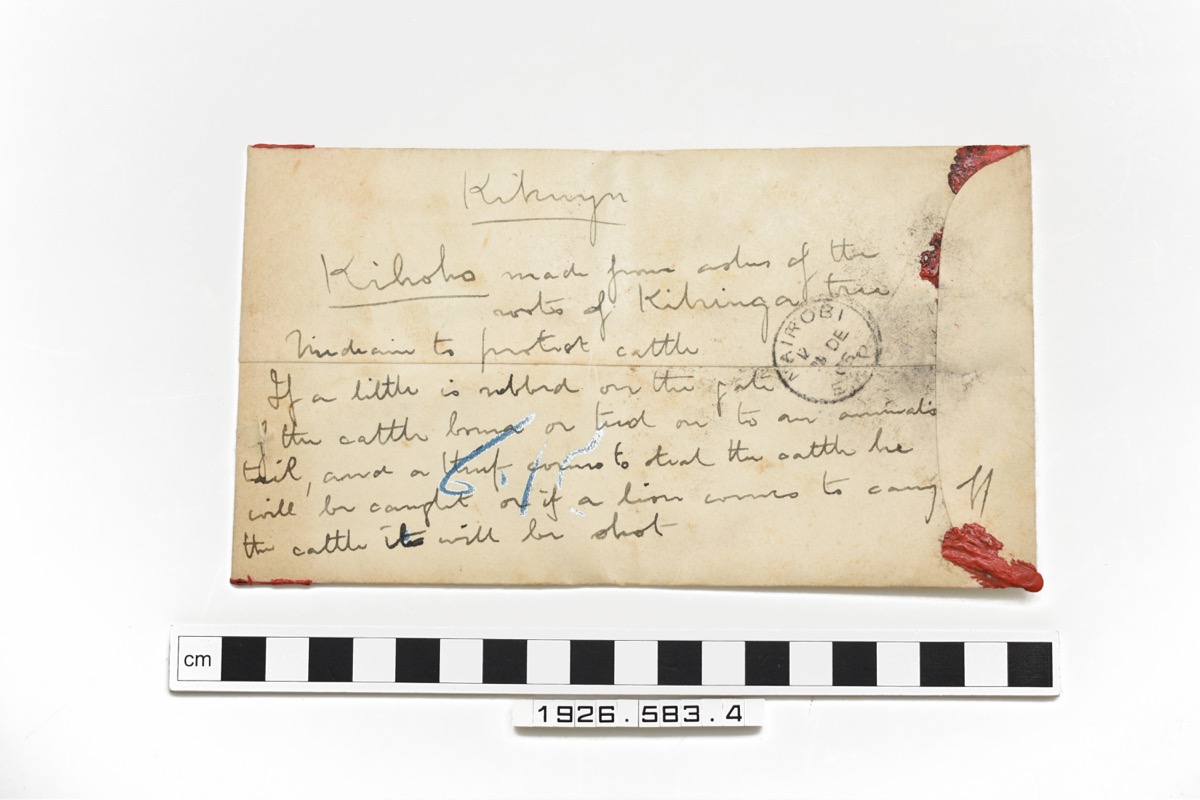 Kikuyu
Kihoho made from ashes of the
roots of Kikinga tree
Medicine to protect cattle
If a little is rubbed on the gate
of the cattle boma or tied on to an animals
tail, and a thief comes to steal the cattle he
will be caught or if a lion comes to carry off
the cattle it will be shot
NAIROBI
DE
6.15
cm
1926.583.4